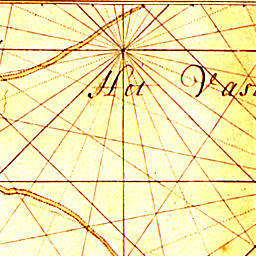 Het Vas